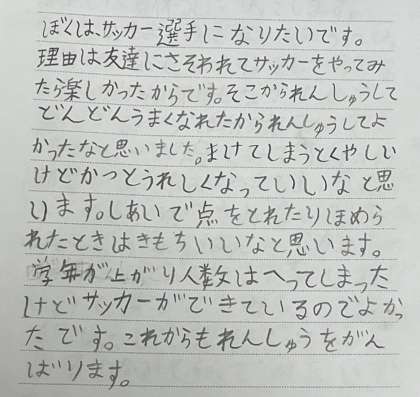 ぼくは、サッカー選手になりたいです。
理由は友達にさそわれてサッカーをやってみ
たら楽しかったからです。そこかられんしゅうして
どんどんうまくなれたかられんしゅうしてよ
かったなと思いました。まけてしまうとくやしい
けどかつとうれしくなっていいなと思
います。しあいで点をとれたりほめら
れたときはきもちいいなと思います。
学年が上がり人数はへってしまった
けどサッカーができているのでよかっ
たです。これからもれんしゅうをがん
ばります。